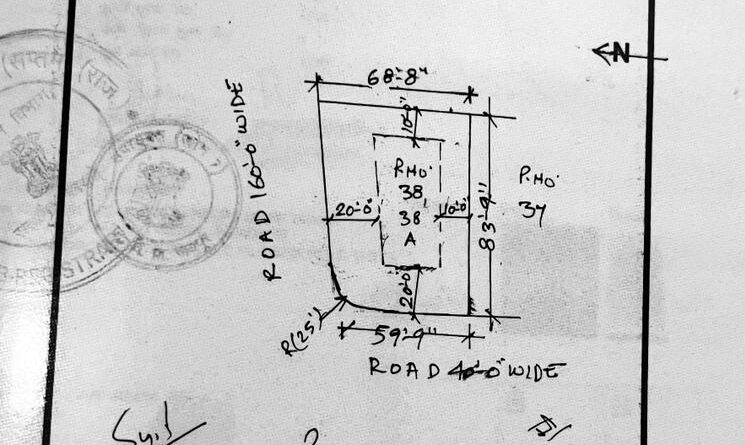 N
68'-8"
ROAD 160'-0" WIDE
10'-0"
P.NO.
38
38
A
20'-0"
10'-0"
83'-9"
P.NO.
37
20'-0
R(25')
59'-9"
ROAD 40'-0" WIDE